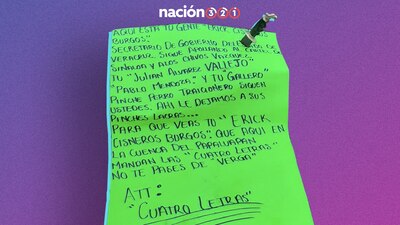 nación321
AQUI ESTA TU GENTE "ERICK CISNEROS
BURGOS".
SECRETARIO DE GOBIERNO DEL ESTADO DE
VERACRUZ. SIGUE APOYANDO AL CARTEL DE
SINALOA Y A LOS CHIVOS VAZQUEZ.
TU "JULIAN ALVAREZ VALLEJO"
"PABLO MENDOZA" Y TU "GALLERO"
PINCHE PERRO TRAICIONERO SIGUEN
USTEDES. AHI LE DEJAMOS A SUS
PINCHES LACRAS...
PARA QUE VEAS TU "ERICK
CISNEROS BURGOS". QUE AQUI EN
LA CUENCA DEL PAPALOAPAN
MANDAN LAS "CUATRO LETRAS"
NO TE PASES DE VERGA"
ATT:
"CUATRO LETRAS"